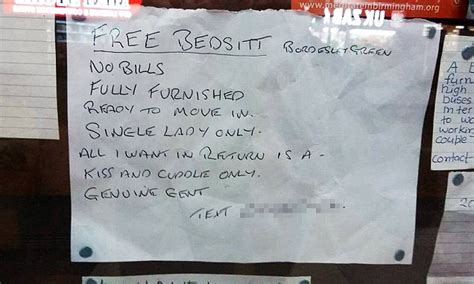 FREE BEDSITT BORDESLEY GREEN
NO BILLS
FULLY FURNISHED
READY TO MOVE IN.
SINGLE LADY ONLY.
ALL I WANT IN RETURN IS A -
KISS AND CUDDLE ONLY.
GENUINE GENT
TEXT
A
furn
high
buses
to w
workin
couple
contact